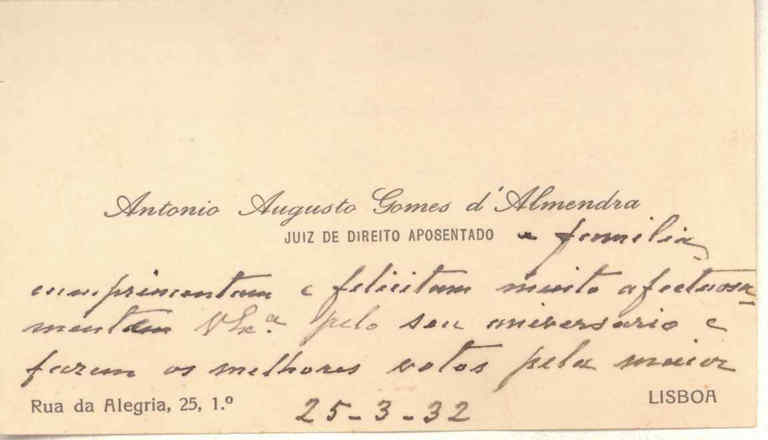 Antonio Augusto Gomes d'Almendra
JUIZ DE DIREITO APOSENTADO e familia
cumprimentam e felicitam muito afectuosa-
mente V. Ex.ª pelo seu aniversario e
fazem os melhores votos pela maior
Rua da Alegria, 25, 1.º 25-3-32 LISBOA